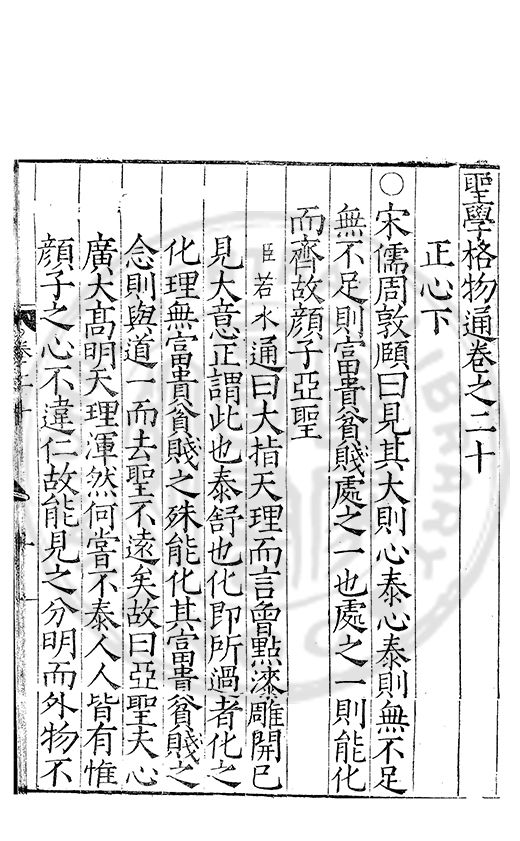 聖學格物通卷之二十
正心下
○宋儒周敦頥曰見其大則心泰心泰則無不足
無不足則富貴貧賤處之一也處之一則能化
而齊故顔子亞聖
臣若水通曰大指天理而言曾點漆雕開已
見大意正謂此也泰舒也化即所過者化之
化理無富貴貧賤之殊能化其富貴貧賤之
念則與道一而去聖不遠矣故曰亞聖夫心
廣大髙明天理渾然何嘗不泰人人皆有惟
顔子之心不違仁故能見之分明而外物不